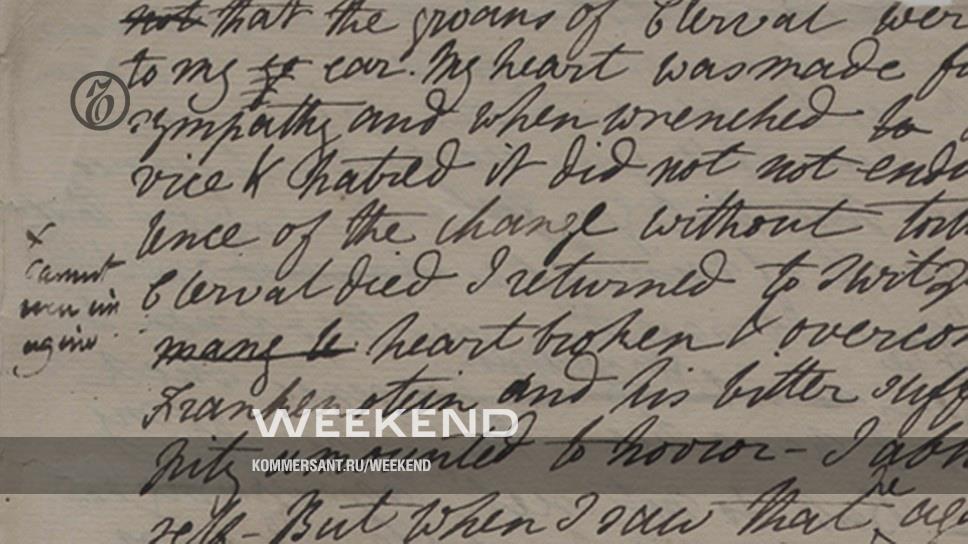 not that the groans of Clerval wer
to my ear. My heart was made fo
sympathy and when wrenched to
vice & hatred it did not not endu
lence of the change without tort
x
cannot
even im
agine
Clerval died I returned to Switz
heart broken & overcom
Frankenstein and his bitter suff
pity amounted to horror - I abh
self - But when I saw that he
WEEKEND
KOMMERSANT.RU/WEEKEND